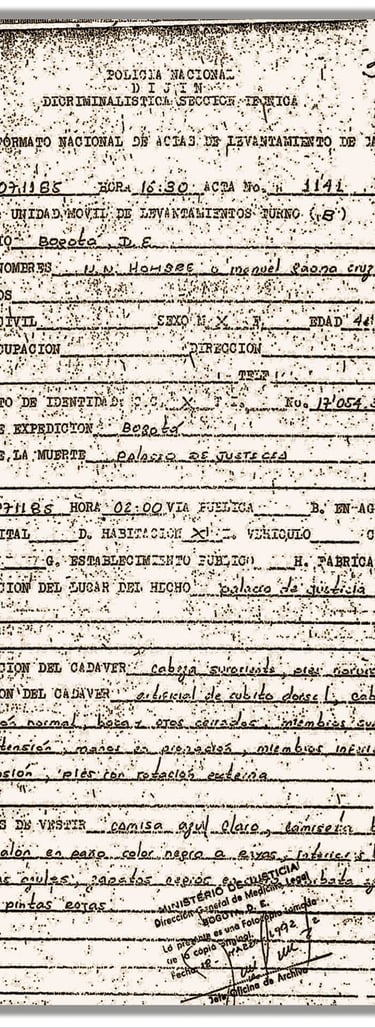 POLICIA NACIONAL
D I J I N
DICRIMINALISTICA SECCION TECNICA
FORMATO NACIONAL DE ACTAS DE LEVANTAMIENTO DE
071185 HORA 16:30 ACTA No. 1141
UNIDAD MOVIL DE LEVANTAMIENTOS TURNO (B)
IO Bogotá, D.E.
NOMBRES N.N. HOMBRE o manuel Gaona cruz
OS
CIVIL SEXO M X F. EDAD
CUPACION DIRECCION
TELF
TO DE IDENTIDAD: C.C. X T.I. No. 17'054.
E EXPEDICION Bogotá
E LA MUERTE palacio DE JUSTICIA
071185 HORA 02:00 VIA PUBLICA B. EN
ITAL D. HABITACION X VEHICULO
G. ESTABLECIMIENTO PUBLICO H. FABRICA
CION DEL LUGAR DEL HECHO palacio de justicia
CION DEL CADAVER cabeza suroriente, pies
ON DEL CADAVER artificial de cubito dorsal,
normal, boca y ojos cerrados, miembros
tensión, manos en pronación, miembros
pies con rotación externa
S DE VESTIR camisa azul claro, camiseta
alón en paño color negro a rayas,
azules, zapatos negros
pintas rojas
MINISTERIO DE JUSTICIA
Dirección General de Medicina Legal
BOGOTA, D. E.
La presente es una Fotocopia tomada
de la copia original
Fecha: 1992
Jefe Oficina de Archivo